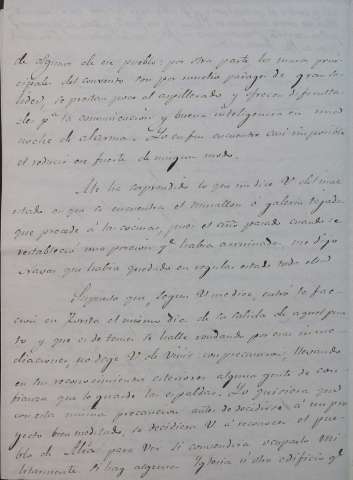 de algunos de ese pueblo: por otra parte los muros prin-
cipales del convento son por muchos parages de gran so-
lidez, se prestan poco al aspillerado y ofrecen dificulta-
des pª la comunicacion y buena inteligencia en una
noche de alarma. Lo en fin encuentro casi imposible
el reducir en fuerte de ningun modo.
Me ha sorprendido lo que me dice V del mal
estado en que se encuentra el murallon ó galeria tejada
que precede á las cocinas, pues el año pasado cuando se
restableció una porcion qe habia arruinada, me dijo
Navas que habia quedado en regular estado todo él.
Supuesto que, segun V me dice, entró la fac-
cion en Zorita el mismo dia de la salida de aquel pun-
to y que si de tener la halle rondando por esas inme-
diaciones, no deje V de vivir con precaucion, llevando
en sus reconocimientos esteriores alguna gente de con-
fianza que le guarde las espaldas. Yo quisiera que
con esta misma precaucion antes de decidirse á un pro-
yecto bien meditado, se decidiera V á reconocer el pue-
blo de Alía para ver si convendria ocuparlo mi-
litarmente si hay alguna Iglesia ú otro edificio qe